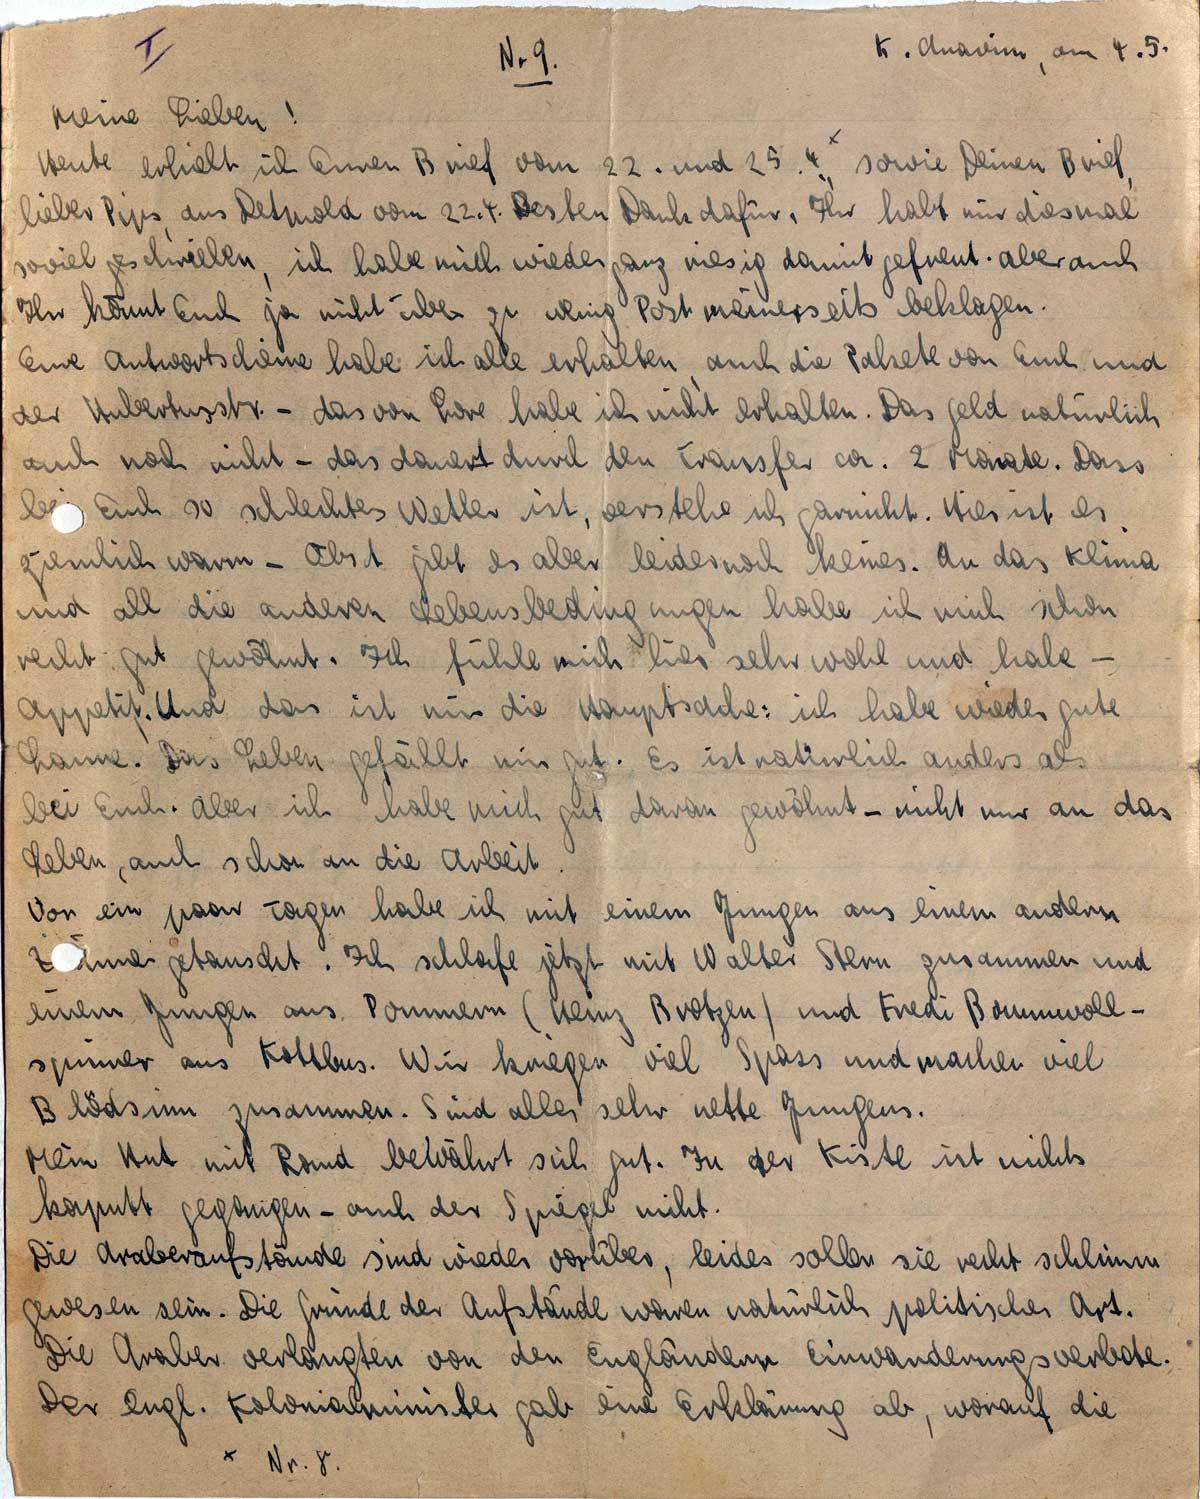 I
Nr 9.
K. Anavim, am 4.5.
Meine Lieben!
Heute erhielt ich Euren Brief vom 22. und 25.4.x, sowie Deinen Brief,
lieber Pips, aus Detmold vom 22.4. Besten Dank dafür. Ihr habt mir diesmal
soviel geschrieben, ich habe mich wieder ganz riesig damit gefreut. aber auch
Ihr könnt Euch ja nicht über zu wenig Post meinerseits beklagen.
Eure Antwortscheine habe ich alle erhalten, auch die Pakete von Euch und
der Hubertusstr. – das von Lore habe ich nicht erhalten. Das Geld natürlich
auch noch nicht – das dauert durch den Transfer ca. 2 Monate. Dass
bei Euch so schlechtes Wetter ist, verstehe ich garnicht. Hier ist es
ziemlich warm – Obst gibt es aber leider noch keines. An das Klima
und all die anderen Lebensbedingungen habe ich mich schon
recht gut gewöhnt. Ich fühle mich hier sehr wohl und habe –
Appetit. Und das ist mir die Hauptsache: ich habe wieder gute
Laune. Das Leben gefällt mir gut. Es ist natürlich anders als
bei Euch. Aber ich habe mich gut daran gewöhnt – nicht nur an das
Leben, auch schon an die Arbeit.
Vor ein paar Tagen habe ich mit einem Jungen aus einem andern
getauscht. Ich schlafe jetzt mit Walter Stern zusammen und
einem Jungen aus Pommern (Heinz Brotzen) und Fredi Baumwoll-
spinner aus Kottbus. Wir kriegen viel Spass und machen viel
Blödsinn zusammen. Sind alles sehr nette Jungens.
Mein Hut mit Rand bewährt sich gut. In der Kiste ist nichts
kaputt gegangen – auch der Spiegel nicht.
Die Araberaufstände sind wieder vorüber, leider sollen sie recht schlimm
gewesen sein. Die Gründe der Aufstände waren natürlich politischer Art.
Die Araber verlangten von den Engländern Einwanderungsverbote.
Der engl. Kolonialminister gab eine Erklärung ab, worauf die
x Nr. 8.